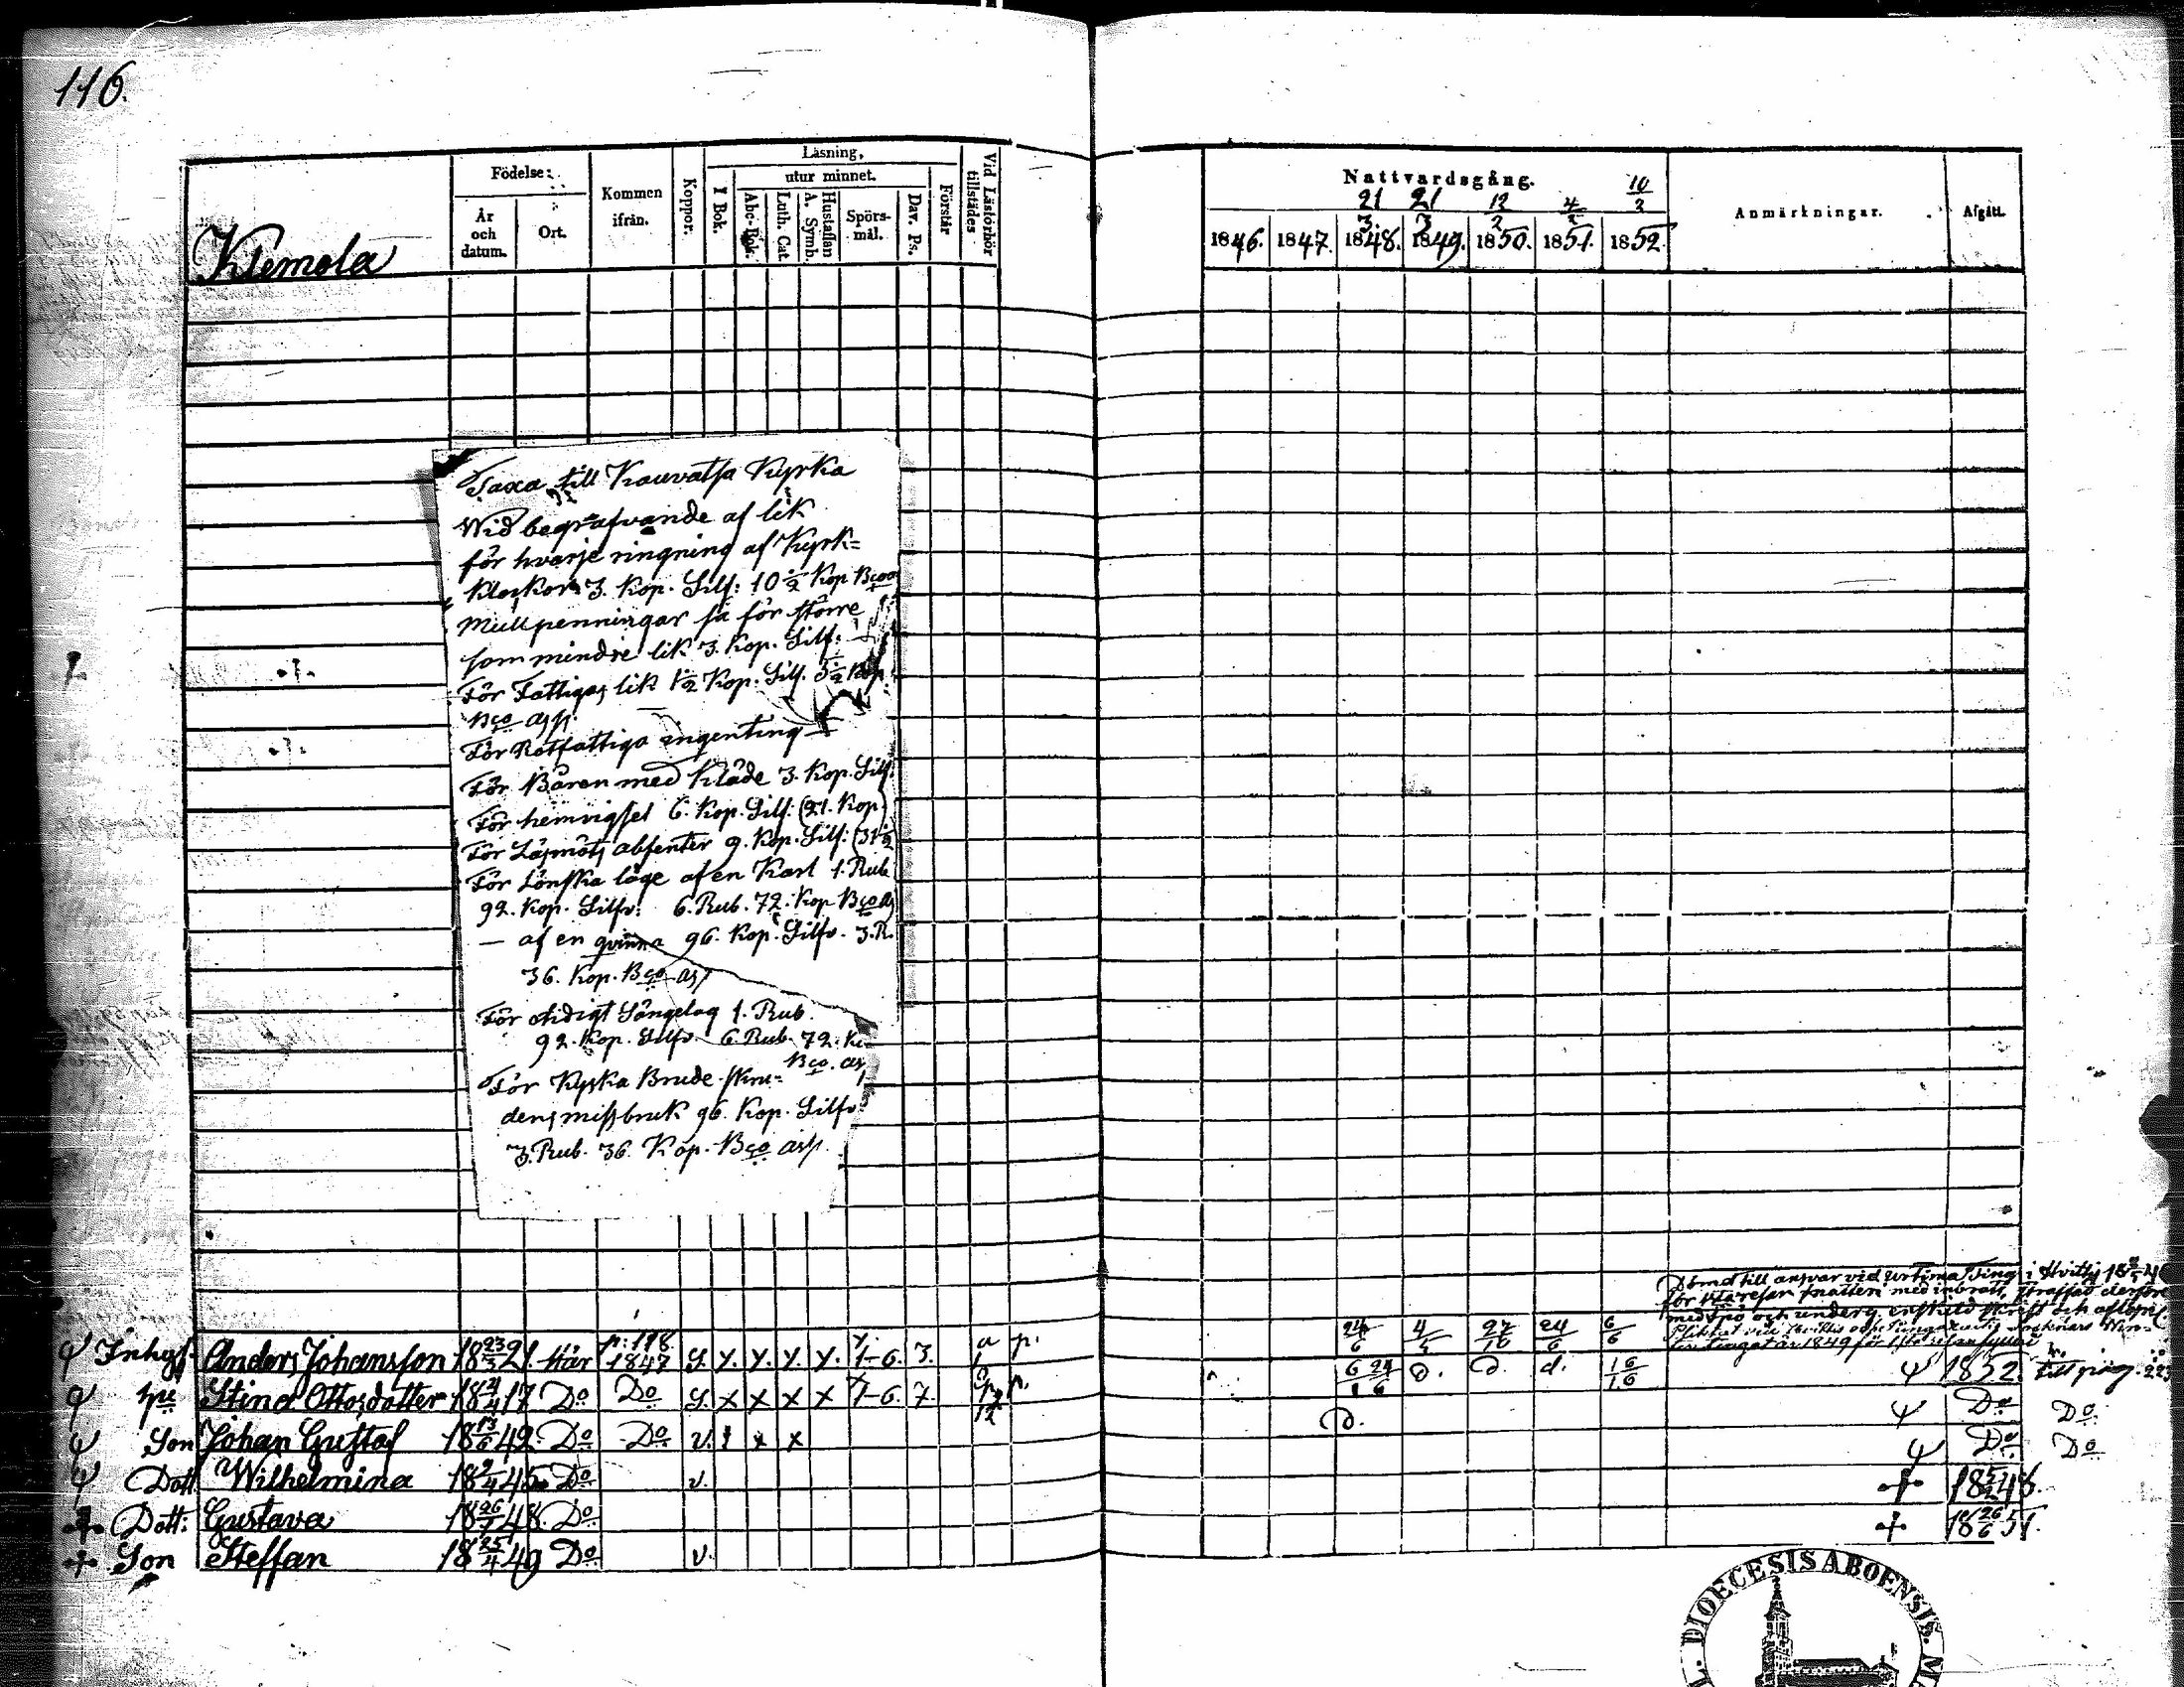 116.
Klemola
Födelse:
År och datum.
Ort.
Kommen ifrån.
Koppor.
Läsning,
I Bok.
utur minnet.
Abc-Bok.
Luth. Cat.
Hustaflan A. Symb.
Spörsmål.
Dav. Ps.
Förstår
Vid Läsförhör tillstädes
Nattvardsgång.
21/3 21/3 12/2 4/2 10/2
1846. 1847. 1848. 1849. 1850. 1851. 1852.
Anmärkningar.
Afgått.
Taxa till Kauvatsa Kyrka
Wid begrafvande af lik
för hvarje ringning af Kyrk=
klockor 3. Kop. Silf: 10½ Kop Bco
Mullpenningar så för större
som mindre lik 3. Kop. Silf:
För Fattigas lik 1½ Kop. Silf. 5¼ Kop.
Bco ass.
För Rotfattiga ingenting
För Båren med kläde 3. Kop. Silf.
För hemvigsel 6. Kop. Silf: (21. Kop)
För Läsmöts absenter 9. Kop. Silf: (31½)
För Lönska läge af en Karl 1. Rub
92. Kop. Silfv: 6. Rub. 72. Kop Bco as
— af en qvinna 96. Kop. Silfv. 3. R.
36. Kop. Bco ass
För otidigt Sängelag 1. Rub.
92. Kop. Silfv. 6. Rub. 72. K
Bco. as
För Kyska Brude skru=
dens missbruk 96. Kop. Silfv.
3. Rub. 36. Kop. Bco ass.
Dömd till ansvar vid Urtima Ting i Hvittis
för snatteri med inbrott, straffad derföre
med spö och underg. enskild skrift och
Inhys. Anders Johansson 18 23/3 21. Här p: 118. 1847 y. y. y. y. y. 1-6. 3. a p. 24/6 27/10 24/6 6/6
hu Stina Ottosdotter 18 4/4 17 Do Do y. x x x x 1-6. 7. p. d. d. d. 16/16 1852.
Son Johan Gustaf 18 13/6 42. Do Do v. x x d. Do Do
Dott Wilhelmina 18 9/4 45 Do v. Do Do
Dott: Gustava 18 26/1 48. Do 1848.
Son Steffan 18 25/4 49 Do v. 18 26/6 51.
DIOECESIS ABOENSIS.